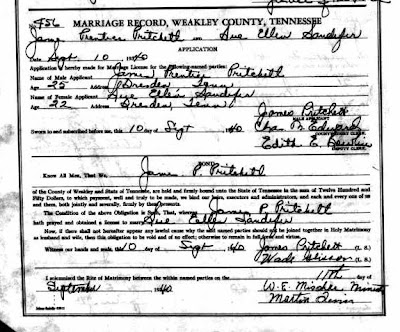 No 456 MARRIAGE RECORD, WEAKLEY COUNTY, TENNESSEE
James Prentice Pritchett AND Sue Ellen Sandefer
APPLICATION
Date Sept. 10 1940
Application is hereby made for Marriage License for the following-named parties:
Name of Male Applicant James Prentice Pritchett
Age 25 Address Dresden, Tenn
Name of Female Applicant Sue Ellen Sandefer
Age 22 Address Dresden, Tenn
James Pritchett
MALE APPLICANT
Sworn to and subscribed before me, this 10 day of Sept 1940
COUNTY COURT CLERK
Edith E.
DEPUTY CLERK
BOND
Know All Men, That We, James P. Pritchett
of the County of Weakley and State of Tennessee, are held and firmly bound unto the State of Tennessee in the sum of Twelve Hundred and
Fifty Dollars, to which payment, well and truly to be made, we bind our heirs, executors and administrators, and each and every one of us
and them, both jointly and severally, firmly by these presents.
The Condition of the above Obligation is Such, That, whereas James P Pritchett
hath prayed and obtained a license to marry Sue Ellen Sandefer
Now, if there shall not hereafter appear any lawful cause why the said named parties should not be joined together in Holy Matrimony
as husband and wife, then this obligation to be void and of no effect; otherwise to remain in full force and virtue.
Witness our hands and seals, this 10 day of Sept 1940 James Pritchett (L.S.)
Wade (L.S.)
I solemnized the Rite of Matrimony between the named parties on the 11th day of
September 1940 W. E. Mischke,
Martin Tenn